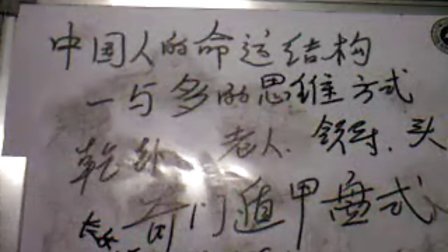 中国人的命运结构
一与多的思维方式
乾卦 老人. 领导. 头
奇门遁甲盘式